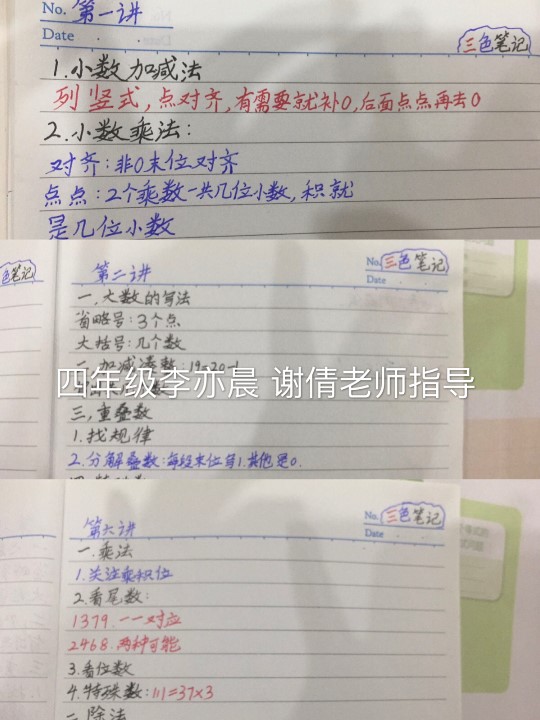 No. 第一讲
Date
三色笔记
1.小数加减法
列竖式,点对齐,有需要就补0,后面点点再去0
2.小数乘法:
对齐:非0末位对齐
点点:2个乘数一共几位小数,积就
是几位小数
色笔记
第二讲
No. 三色笔记
Date
一,大数的写法
省略号:3个点
大括号:几个数
四年级李亦晨 谢倩老师指导
三,重叠数
1.找规律
2.分解叠数:每段末位写1.其他是0.
第六讲
No. 三色笔记
Date
一.乘法
1.关注乘积位
2.看尾数:
1379.一一对应
2468.两种可能
3.看位数
4.特殊数:111=37×3
二.除法